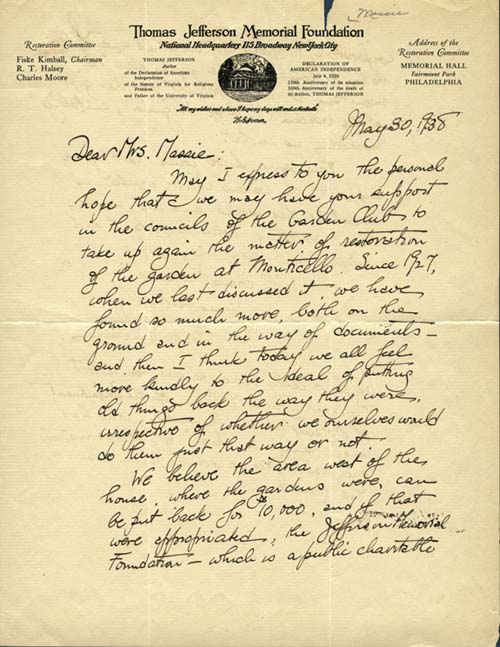 Massie
Thomas Jefferson Memorial Foundation
National Headquarters 115 Broadway New York City
Restoration Committee
Fiske Kimball, Chairman
R. T. Halsey
Charles Moore
THOMAS JEFFERSON
Author
of the Declaration of American
Independence
of the Statute of Virginia for Religious
Freedom
and Father of the University of Virginia
DECLARATION OF
AMERICAN INDEPENDENCE
July 4, 1926
150th Anniversary of its adoption
100th Anniversary of the death of
its Author, THOMAS JEFFERSON
Address of the
Restoration Committee
MEMORIAL HALL
Fairmount Park
PHILADELPHIA
"All my wishes end where I hope my days will end at Monticello
Th. Jefferson
May 30, 1938
Dear Mrs. Massie:
May I express to you the personal
hope that we may have your support
in the councils of the Garden Club to
take up again the matter of restoration
of the garden at Monticello. Since 1927,
when we last discussed it we have
found so much more, both on the
ground and in the way of documents –
and then I think today we all feel
more kindly to the ideal of putting
old things back the way they were,
irrespective of whether we ourselves would
do them just that way or not.
We believe the area west of the
house, where the gardens were, can
be put back for $10,000, and if that
were appropriated, the Jefferson Memorial
Foundation – which is a public charitable